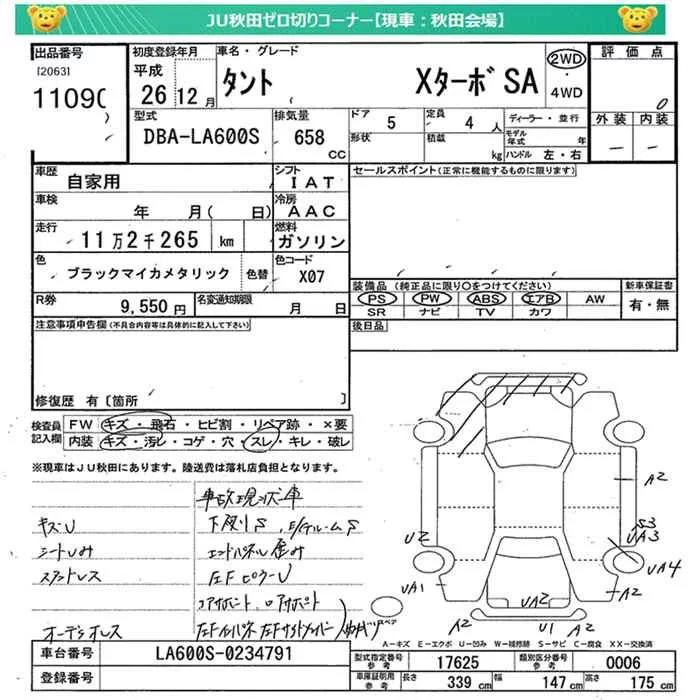 JU秋田ゼロ切りコーナー【現車：秋田会場】
出品番号
[2063]
1109
初度登録年月
平成
26年12月
車名・グレード
タント XターボSA
2WD
・
4WD
評価点
0
外装 内装
ー ー
型式
DBA-LA600S
排気量
658
CC
ドア
5
形状
定員
4人
積載
kg
ディーラー・並行
モデル年式 年
ハンドル 左・右
車歴
自家用
シフト
IAT
車検
年 月( 日)
冷房
AAC
走行
11万2千265 km
燃料
ガソリン
色
ブラックマイカメタリック
色替
色コード
X07
R券
9,550円
名変通知期限
月 日
セールスポイント(正常に機能するものに限ります)
装備品(純正品に限り○をつけてください)
PS PW ABS エアB AW
SR ナビ TV カワ
新車保証書
有・無
後日品
注意事項申告欄(不具合内容等は具体的に記入して下さい)
修復歴 有〔箇所 〕
検査員
記入欄
FW キズ・飛石・ヒビ割・リペア跡・×要
内装 キズ・汚レ・コゲ・穴・スレ・キレ・破レ
※現車はJU秋田にあります。陸送費は落札店負担となります。
事故現状車
キズU
下廻りS
シートUみ
エンドパネル歪み
スタットレス
左FピラーU
コアサポート
オーディオレス
A2
S3
UA3
U2
UA4
UA1
A2
UA2
A2
U1
A2
A－キズ E－エクボ U－凹み W－補修跡 S－サビ C－腐食 XX－交換済
車台番号
LA600S-0234791
登録番号
型式指定番号
参考
17625
類別区分番号
参考
0006
車庫証明用
参考
長さ
339 cm
幅
147 cm
高さ
175 cm